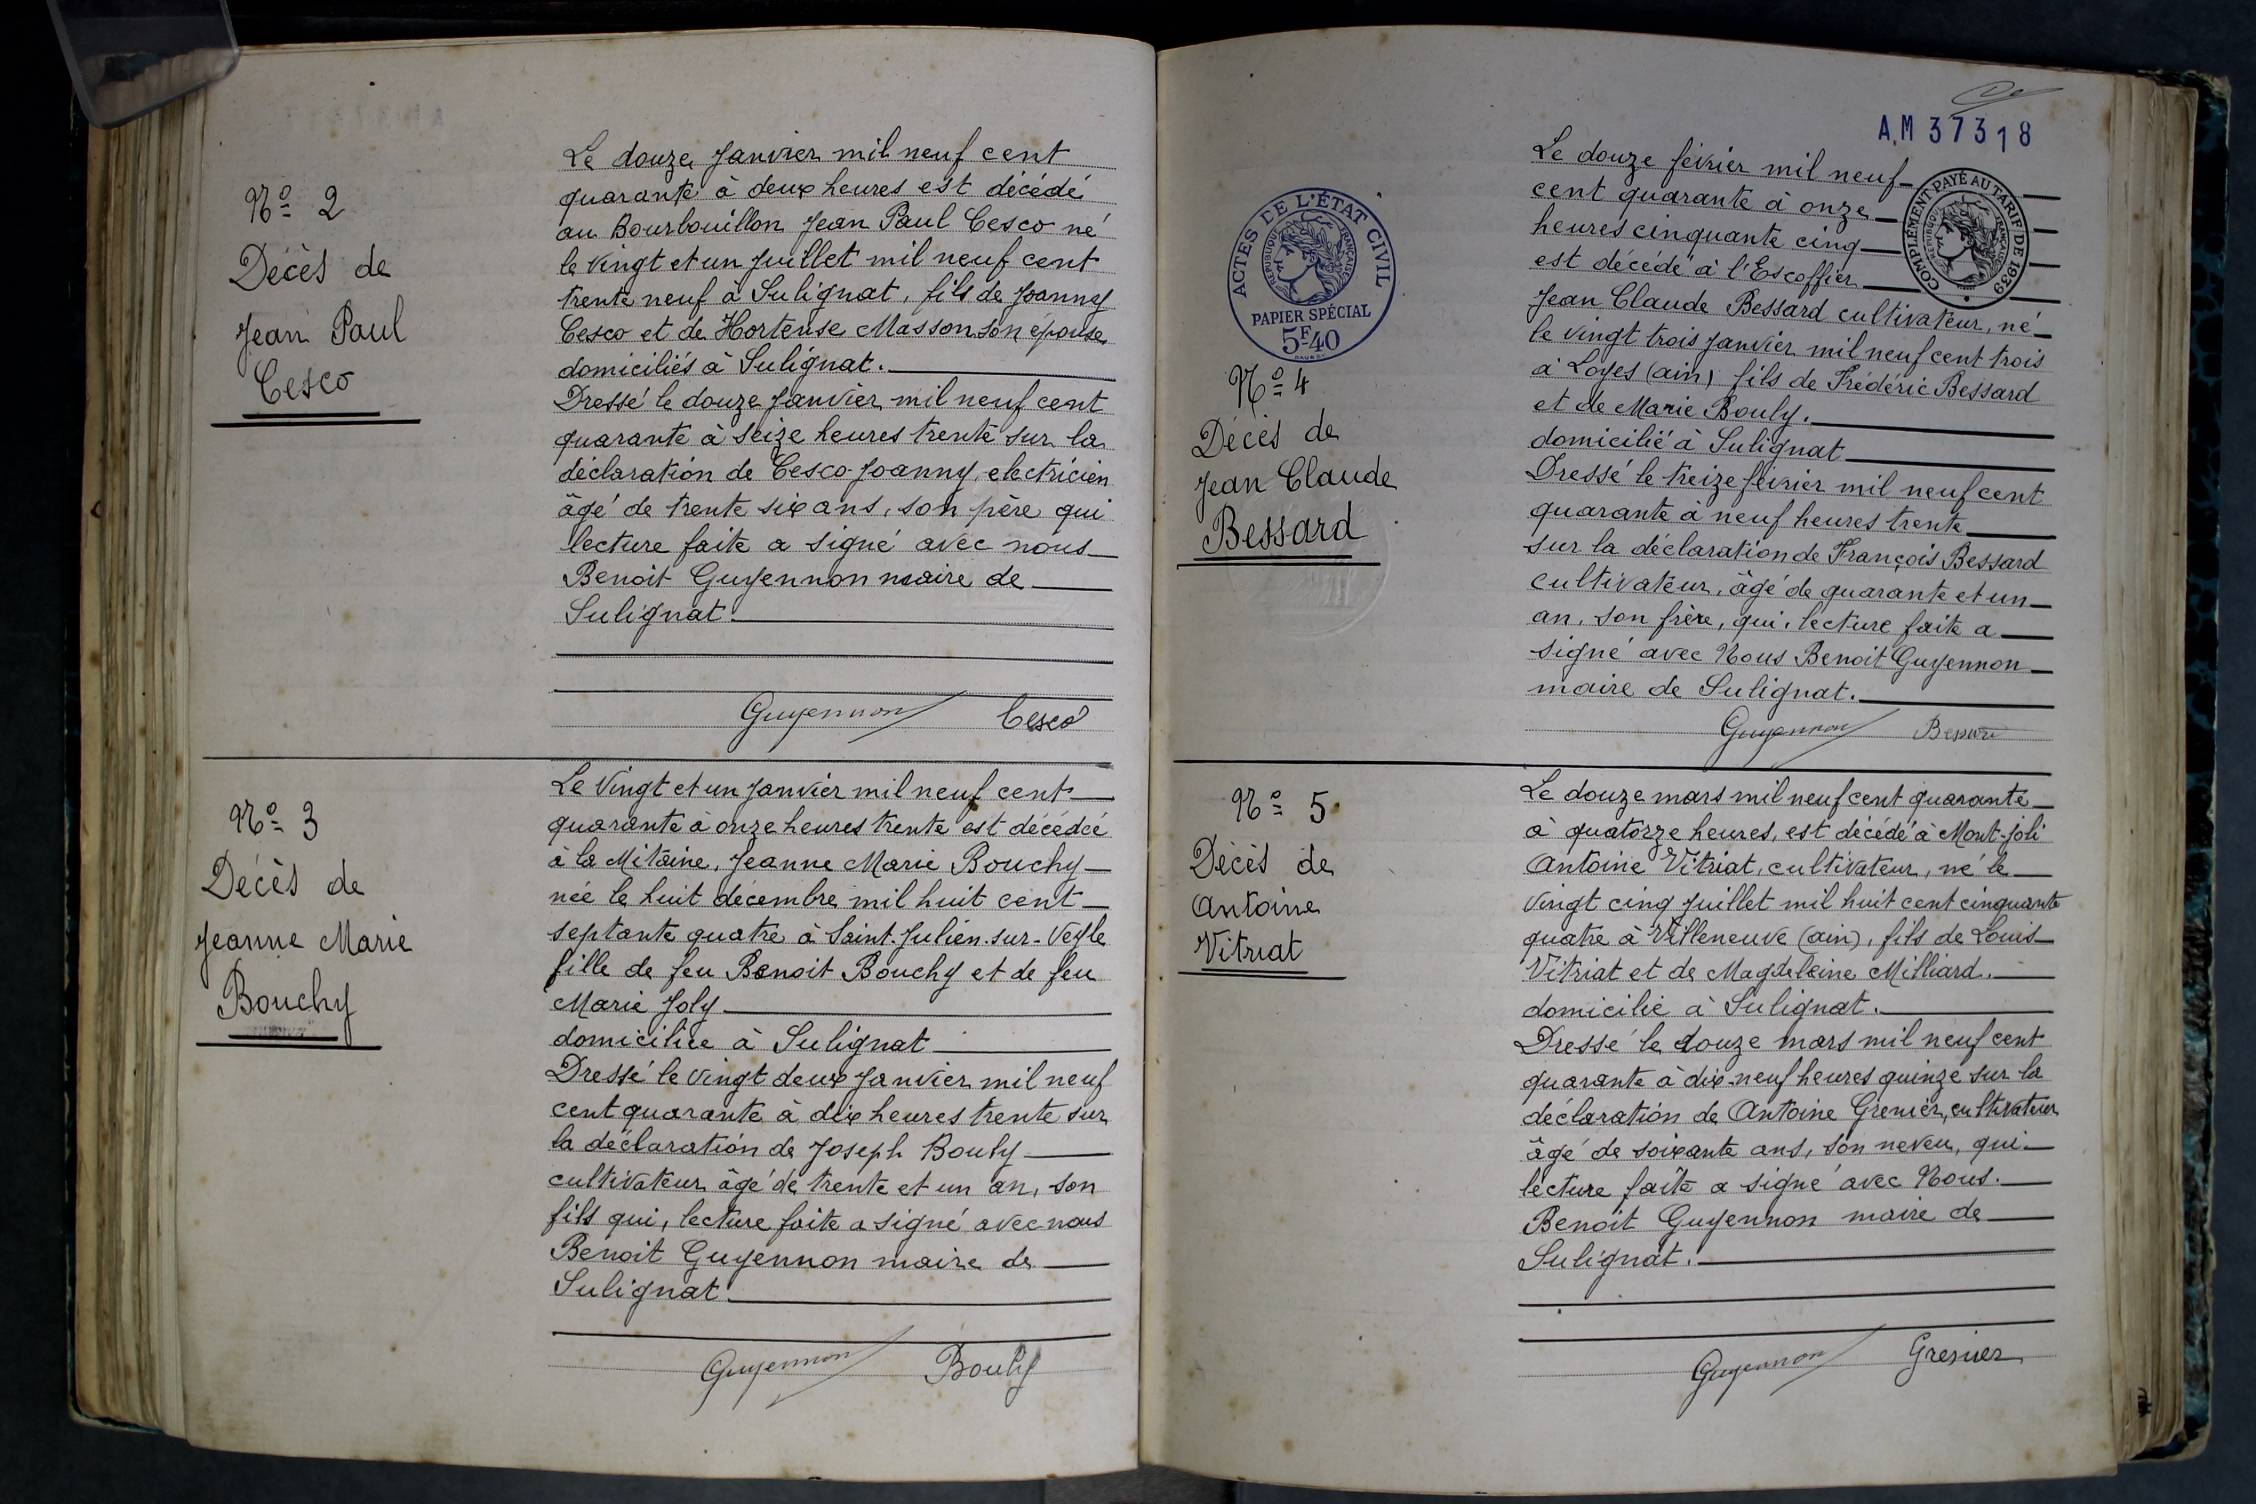 Nº 2
Décès de
Jean Paul
Cesco
Le douze Janvier mil neuf cent
quarante à deux heures est décédé
au Bourbouillon Jean Paul Cesco né
le vingt et un Juillet mil neuf cent
trente neuf à Sulignat, fils de Joanny
Cesco et de Hortense Masson son épouse
domiciliés à Sulignat.
Dressé le douze Janvier mil neuf cent
quarante à seize heures trente sur la
déclaration de Cesco Joanny, electricien
âgé de trente six ans, son père qui
lecture faite a signé avec nous
Benoit Guyennon maire de
Sulignat.
Guyennon Cesco
Nº 3
Décès de
Jeanne Marie
Bouchy
Le vingt et un Janvier mil neuf cent
quarante à onze heures trente est décédée
à la Mitaine, Jeanne Marie Bouchy
née le huit décembre mil huit cent
septante quatre à Saint-Julien-sur-Veyle
fille de feu Benoit Bouchy et de feu
Marie Joly
domiciliée à Sulignat
Dressé le vingt deux Janvier mil neuf
cent quarante à dix heures trente sur
la déclaration de Joseph Bouly
cultivateur âgé de trente et un an, son
fils qui, lecture faite a signé avec nous
Benoit Guyennon maire de
Sulignat.
Guyennon Bouly
A.M 37318
ACTES DE L'ÉTAT CIVIL
RÉPUBLIQUE FRANÇAISE
PAPIER SPÉCIAL
5F40
COMPLÉMENT PAYÉ AU TARIF DE 1939
RÉPUBLIQUE FRANÇAISE
Nº 4
Décès de
Jean Claude
Bessard
Le douze février mil neuf
cent quarante à onze
heures cinquante cinq
est décédé à l'Escoffier
Jean Claude Bessard cultivateur, né
le vingt trois Janvier mil neuf cent trois
à Loyes (ain) fils de Frédéric Bessard
et de Marie Bouly.
domicilié à Sulignat
Dressé le treize février mil neuf cent
quarante à neuf heures trente
sur la déclaration de François Bessard
cultivateur, âgé de quarante et un
an, son frère, qui, lecture faite a
signé avec Nous Benoit Guyennon
maire de Sulignat.
Guyennon Bessard
Nº 5
Décès de
Antoine
Vitriat
Le douze mars mil neuf cent quarante
à quatorze heures, est décédé à Mont-joli
Antoine Vitriat, cultivateur, né le
vingt cinq Juillet mil huit cent cinquante
quatre à Villeneuve (ain), fils de Louis
Vitriat et de Magdeleine Milliard.
domicilié à Sulignat.
Dressé le douze mars mil neuf cent
quarante à dix-neuf heures quinze sur la
déclaration de Antoine Grenier, cultivateur
âgé de soixante ans, son neveu, qui
lecture faite a signé avec Nous.
Benoit Guyennon maire de
Sulignat.
Guyennon Grenier